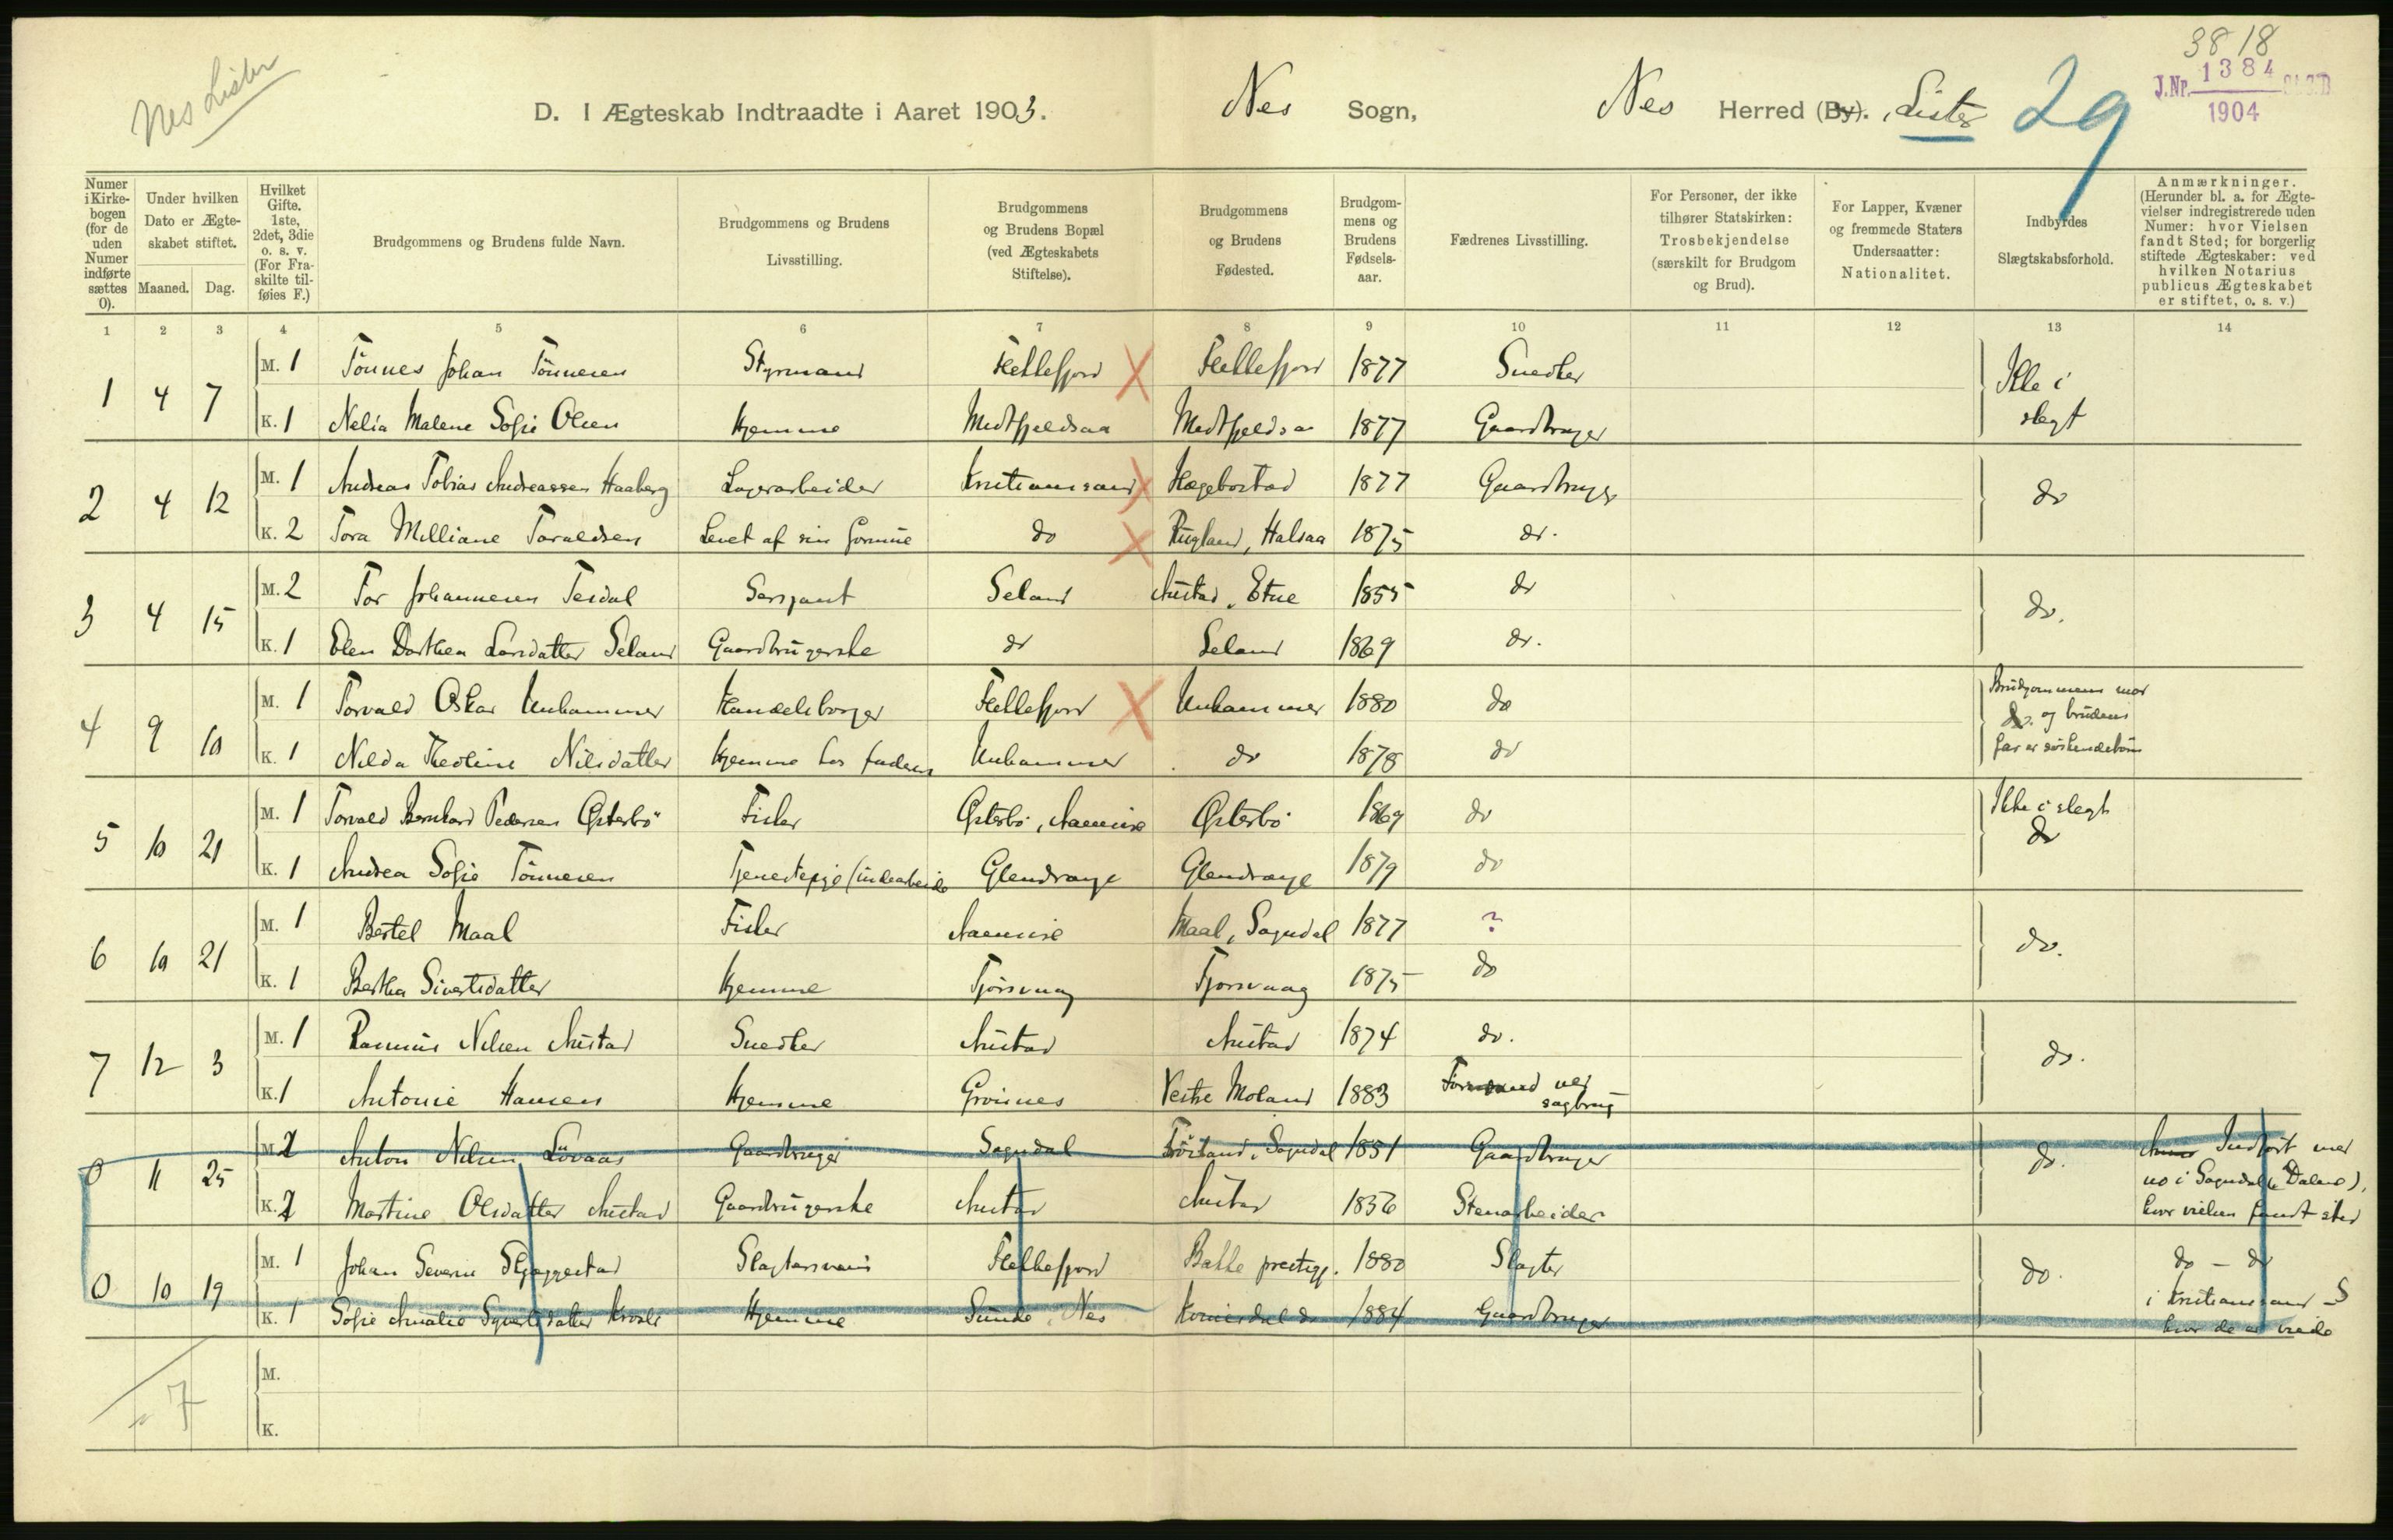 Nes Lister
38 18
J.Nr. 1384 St.S.B
1904
D. I Ægteskab Indtraadte i Aaret 1903. Nes Sogn, Nes Herred (By). , Lister 29
Numer i Kirkebogen (for de uden Numer indførte sættes 0).
Under hvilken Dato er Ægteskabet stiftet.
Maaned. Dag.
Hvilket Gifte. 1ste, 2det, 3die o. s. v. (For Fraskilte tilføies F.)
Brudgommens og Brudens fulde Navn.
Brudgommens og Brudens Livsstilling.
Brudgommens og Brudens Bopæl (ved Ægteskabets Stiftelse).
Brudgommens og Brudens Fødested.
Brudgommens og Brudens Fødselsaar.
Fædrenes Livsstilling.
For Personer, der ikke tilhører Statskirken: Trosbekjendelse (særskilt for Brudgom og Brud).
For Lapper, Kvæner og fremmede Staters Undersaatter: Nationalitet.
Indbyrdes Slægtskabsforhold.
Anmærkninger. (Herunder bl. a. for Ægtevielser indregistrerede uden Numer: hvor Vielsen fandt Sted; for borgerlig stiftede Ægteskaber: ved hvilken Notarius publicus Ægteskabet er stiftet, o. s. v.)
1 2 3 4 5 6 7 8 9 10 11 12 13 14
1 4 7 M. 1 Tönnes Johan Tönnesen Styrmand Flekkefjord Flekkefjord 1877 Snedker Ikke i slegt
K. 1 Nelia Malene Sofie Olsen Hjemme Midtfjeldsaa Midtfjeldsaa 1877 Gaardbruger
2 4 12 M. 1 Andreas Tobias Andreassen Haaberg Lagerarbeider Kristianssand Hægebostad 1877 Gaardbruger do
K. 2 Tora Milliane Taraldsen Levet af sin formue do Rugland, Halsaa 1875 do.
3 4 15 M. 2 Tor Johannesen Tesdal Sersjant Seland Austad, Etne 1855 do do.
K. 1 Elen Dorthea Larsdatter Seland Gaardbrugerske do Seland 1869 do.
4 9 10 M. 1 Torvald Oskar Unhammer Handelsborger Flekkefjord Unhammer 1880 do Brudgommens mor do. og brudens far er söskendebörn
K. 1 Nilda Theoline Nilsdatter Hjemme hos faderen Unhammer do 1878 do
5 10 21 M. 1 Torvald Bernhard Pedersen Österbö Fisker Österbö, Aaensire Österbö 1869 do Ikke i slegt do
K. 1 Andrea Sofie Tönnesen Tjenestepige (indearbeide Glendrange Glendrange 1879 do
6 10 21 M. 1 Bertel Maal Fisker Aaensire Maal, Sogndal 1877 ? do.
K. 1 Bertha Sivertsdatter Hjemme Tjörsvaag Tjorsvaag 1875 do
7 12 3 M. 1 Rasmus Nilsen Austad Snedker Austad Austad 1874 do. do.
K. 1 Antonie Hansen Hjemme Grönnes Vestre Moland 1883 Formand ved sagbrug
0 11 25 M. 2 Anton Nilsen Lövaas Gaardbruger Sogndal Fröitland, Sogndal 1851 Gaardbruger do. Indført med no i Sogndal (i Dalene), hvor vielsen fandt sted
K. 2 Martine Olsdatter Austad Gaardbrugerske Austad Austad 1856 Stenarbeider
0 10 19 M. 1 Johan Severin Skjeggestad Slagtersvein Flekkefjord Bakke prestegj. 1880 Slagter do. do – do i Kristianssand S hvor de er viede
K. 1 Sofie Amalie Syvertsdatter Hjemme Sunde, Nes Kvinesdal do 1884 Gaardbruger
M.
K.
= 7